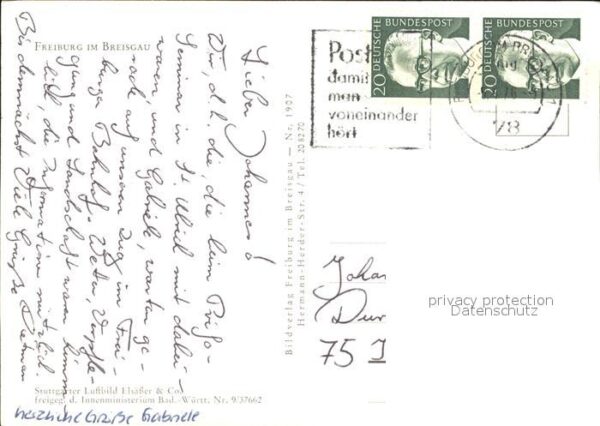 FREIBURG IM BREISGAU
Lieber Johannes!
Wir, d.h. die, die beim Prigo-
Seminar in St. Ulrich mit dabei
waren, und Gabriele, warten ge-
rade auf unseren Zug im Frei-
burger Bahnhof. Wetter, Verpfle-
gung und Landschaft waren
lich, die Information
Bis demnächst Viele Grüße
herzliche Grüße Gabriele
Stuttgarter Luftbild Elsäßer & Co.
freigeg. d. Innenministerium Bad.-Württ. Nr. 9/37662
Bildverlag Freiburg im Breisgau — Nr. 1907
Hermann-Herder-Str. 4 / Tel. 208270
Post
damit
man
voneinander
hört
DEUTSCHE BUNDESPOST
20
DEUTSCHE BUNDESPOST
20
78
Joha
Dur
75
privacy protection
Datenschutz